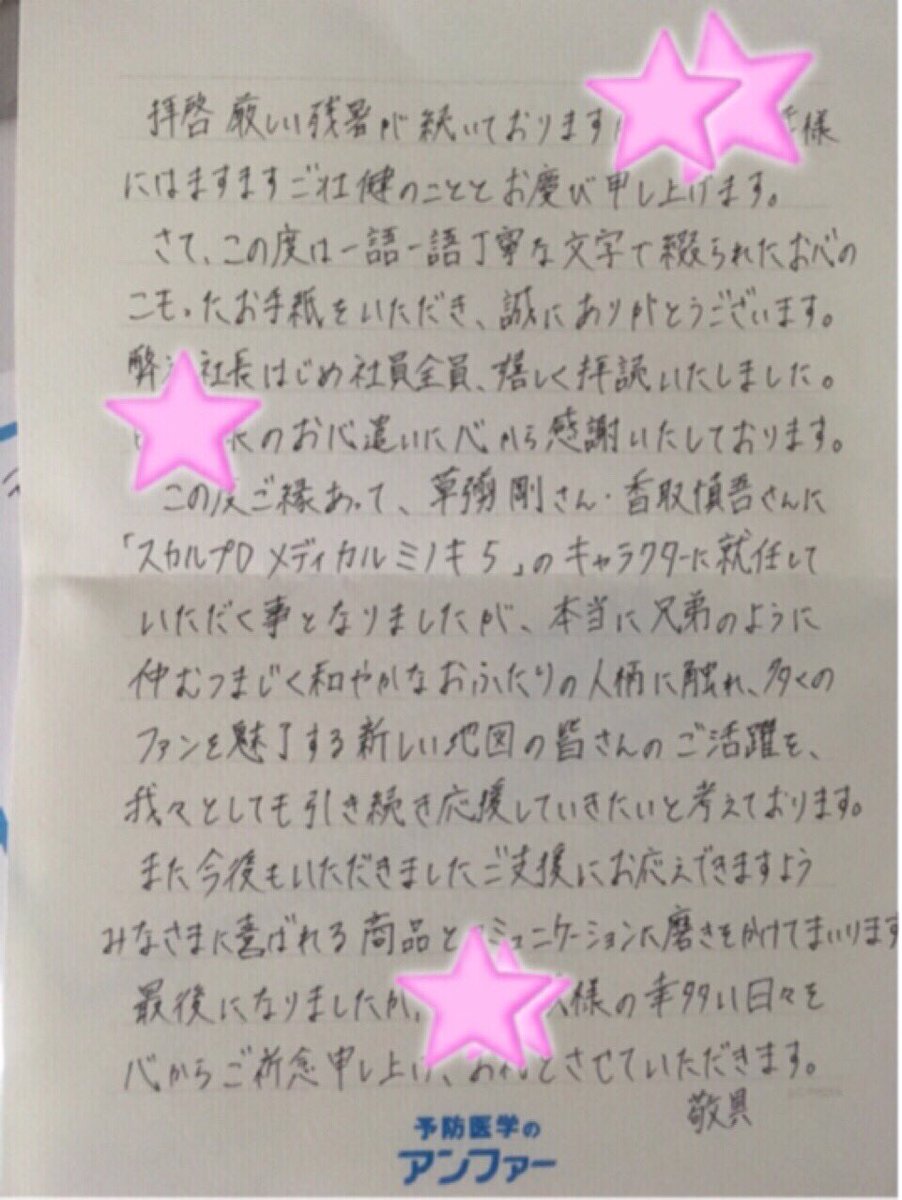 拝啓 厳しい残暑が続いております 様
にはますますご壮健のこととお慶び申し上げます。
さて、この度は一語一語丁寧な文字で綴られたお心の
こもったお手紙をいただき、誠にありがとうございます。
弊社社長はじめ社員全員、嬉しく拝読いたしました。
のお心遣いに心から感謝いたしております。
この度ご縁あって、草彅剛さん・香取慎吾さんに
「スカルプD メディカルミノキ5」のキャラクターに就任して
いただく事となりましたが、本当に兄弟のように
仲むつまじく和やかなおふたりの人柄に触れ、多くの
ファンを魅了する新しい地図の皆さんのご活躍を、
我々としても引き続き応援していきたいと考えております。
また今後もいただきましたご支援にお応えできますよう
みなさまに喜ばれる商品とコミュニケーションに磨きをかけてまいります
最後になりましたが、 様の幸多い日々を
心からご祈念申し上げ、お礼とさせていただきます。
敬具
予防医学の
アンファー